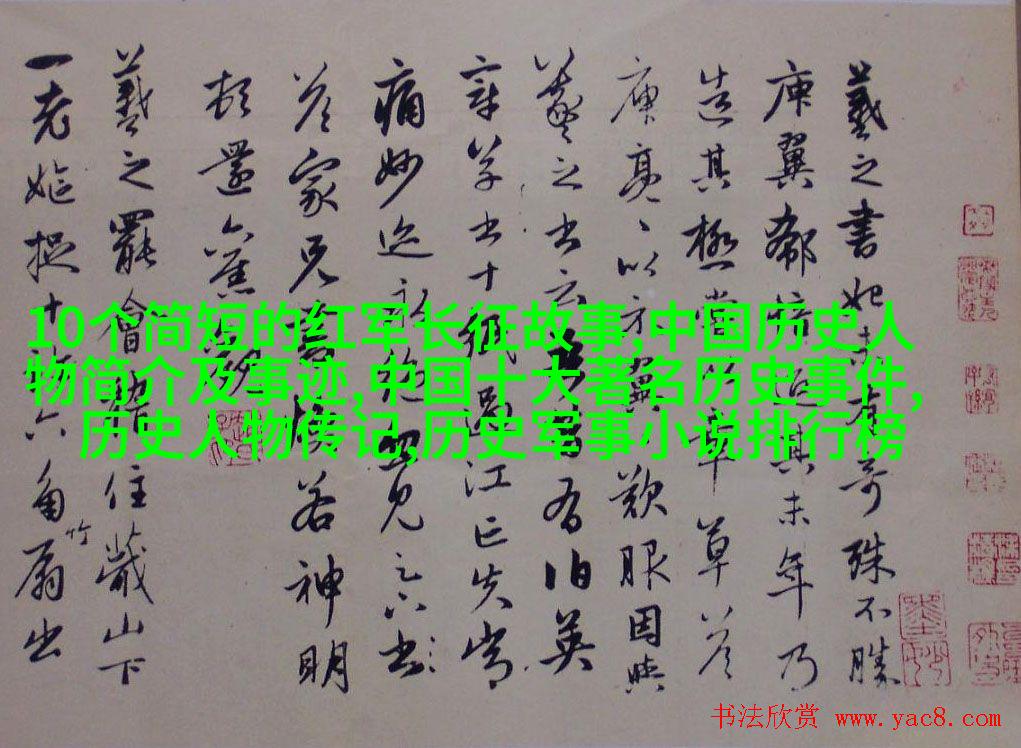 10个简短的红军长征故事,中国历史人
物简介及事迹,中国十大著名历史事件,
历史人物传记,历史军事小说排行榜
羲之書初未有奇殊不勝
庾翼郗愔迨其末年乃
造其極嘗以章草答
庾亮〻以示翼歎服因與
羲之書云吾昔有伯英
章草書十紙過江亡失常
痛妙迹永絕忽見足下書
答家兄書煥若神明
頓還舊觀
羲之罷會稽住蕺山下
一老嫗捉十六角竹扇出
书法欣赏 www.yac8.com